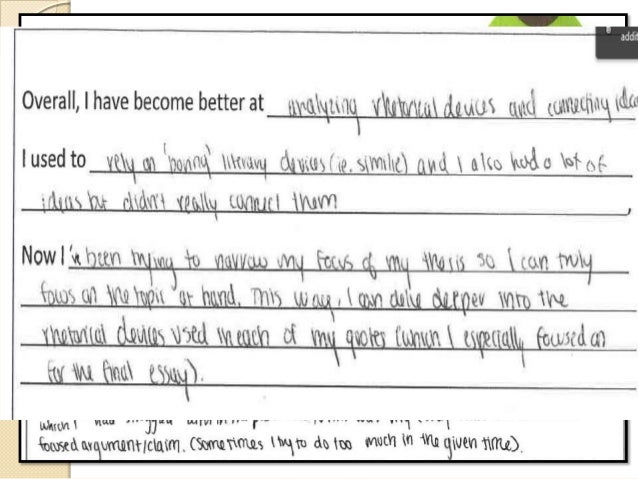 addit
Overall, I have become better at analyzing rhetorical devices and connecting idea
I used to rely on 'bonny' literary devices (ie. similie) and I also had a lot of
ideas but didn't really connect them,
Now I 've been trying to narrow my focus of my thesis so I can truly
focus on the topic at hand. This way, I can delve deeper into the
rhetorical devices used in each of my quotes (which I especially focused on
for the final essay).
which I had
focused argument/claim. (Sometimes I try to do too much in the given time).